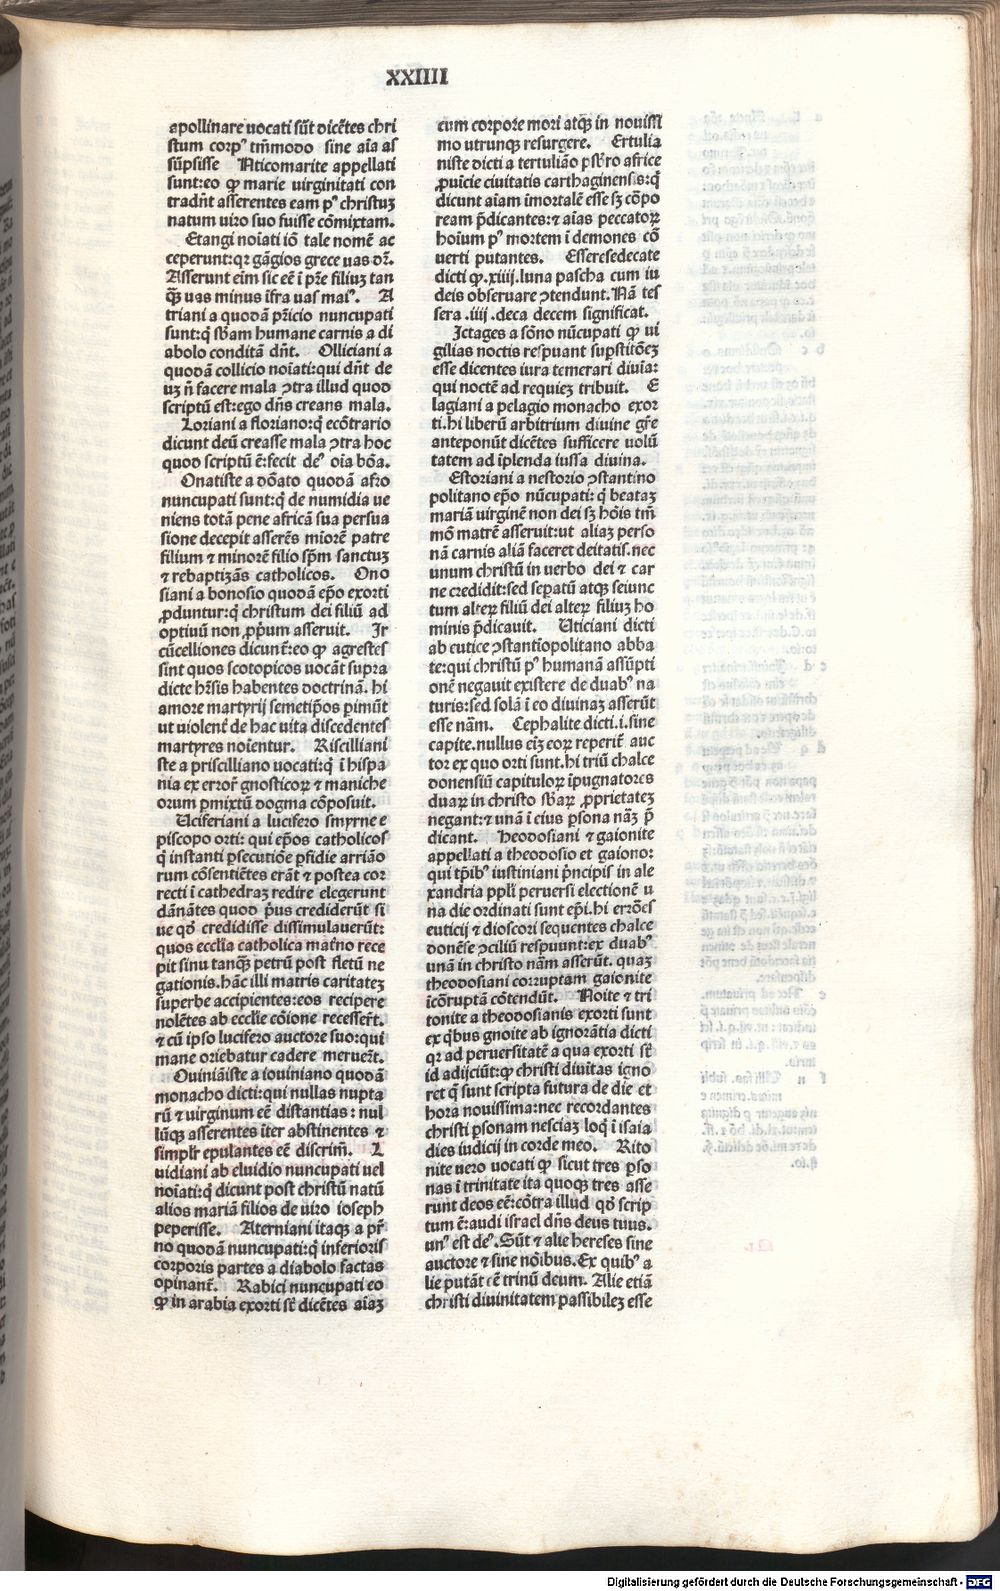 XXIIII
apollinare uocati sūt dicētes chri
stum corpꝰ tm̄modo sine aīa aſ
sūpsisse Nticomarite appellati
sunt:eo ꝙ marie virginitati con
tradn̄t asserentes eam pꝰ christuꝫ
natum uiro suo fuisse cōmixtam.
Etangi noīati iō tale nomē ac
ceperunt:qꝛ gāgios grece uas dr̄.
Asserunt eīm sic eē ī pr̄e filiuꝫ tan
ꝙ̄ uas minus īfra uas maiꝰ. A
triani a quodā pr̄icio nuncupati
sunt:q̇ sb̄am humane carnis a di
abolo conditā dn̄t. Olliciani a
quodā collicio noīati:qui dn̄t de
uꝫ n̄ facere mala ↄtra illud quod
scriptū est:ego dn̄s creans mala.
Loriani a floriano:q̇ ecōtrario
dicunt deū creasse mala ↄtra hoc
quod scriptū ē:fecit deꝰ oīa bōa.
Onatiste a dōato quodā afro
nuncupati sunt:q̇ de numidia ue
niens totā pene africā sua persua
sione decepit asserēs miorē patre
filium ⁊ minorē filio sp̄m sanctuꝫ
⁊ rebaptizās catholicos. Ono
siani a bonosio quodā ep̄o exorti
ꝓduntur:q̇ christum dei filiū ad
optiuū non ꝓp̄um asseruit. Ir
cūcelliones dicunt̄:eo ꝙ agrestes
sint quos scotopicos uocāt supra
dicte hr̄sis habentes doctrinā. hi
amore martyrij semetip̄os ꝑimūt
ut uiolent̄ de hac uita discedentes
martyres noīentur. Riscilliani
ste a priscilliano uocati:q̇ ī hispa
nia ex error̄ gnosticoꝝ ⁊ maniche
orum ꝑmixtū dogma cōposuit.
Uciferiani a lucifero smyrne e
piscopo orti: qui ep̄os catholicos
q̇ instanti ꝑsecutiōe ꝑfidie arriāo
rum cōsentiētes erāt ⁊ postea cor
recti ī cathedraꝫ redire elegerunt
dānātes quod p̄us crediderūt si
ue qd̓ credidisse dissimulauerūt:
quos eccl̄ia catholica mat̓no rece
pit sinu tanqꝫ petrū post fletū ne
gationis.hāc illi matris caritateꝫ
superbe accipientes:eos recipere
nolētes ab eccl̄ie cōione recesser̄t.
⁊ cū ipso lucifero auctore suo:qui
mane oriebatur cadere meruer̄t.
Ouiniāiste a iouiniano quodā
monacho dicti:qui nullas nupta
rū ⁊ uirginum eē distantias: nul
lūqꝫ asserentes īter abstinentes ⁊
simpl̓r epulantes eē discrim̄. L
uidiani ab eluidio nuncupati uel
noīati:q̇ dicunt post christū natū
alios mariā filios de uiro ioseph
peperisse. Aterniani itaqꝫ a pr̄
no quodā nuncupati:q̇ inferioris
corporis partes a diabolo factas
opinant̄. Rabici nuncupati eo
ꝙ in arabia exorti sr̄ dicētes aīaꝫ
cum corpore mori atqꝫ in nouissi
mo utrunqꝫ resurgere. Ertulia
niste dicti a tertuliāo ps̄b̓ro africe
ꝓuīcie ciuitatis carthaginensis:q̇
dicunt aīam īmortalē esse sꝫ cōpo
ream p̄dicantes:⁊ aīas peccatoꝝ
hoīum pꝰ mortem ī demones cō
uerti putantes. Esseresedecate
dicti ꝙ.xiiij.luna pascha cum iu
deis obseruare ↄtendunt.Nā tes
sera .iiij .deca decem significat.
Ictages a sōno nūcupati ꝙ ui
gilias noctis respuant supstitōeꝫ
esse dicentes iura temerari diuīa:
qui noctē ad requieꝫ tribuit. E
lagiani a pelagio monacho exor
ti.hi liberū arbitrium diuine gr̄e
anteponūt dicētes sufficere uolū
tatem ad īplenda iussa diuina.
Estoriani a nestorio ↄstantino
politano ep̄o nūcupati:q̇ beataꝫ
mariā virginē non dei sꝫ hōis tm̄
mō matrē asseruit:ut aliaꝫ perso
nā carnis aliā faceret deitatis.nec
unum christū in uerbo dei ⁊ car
ne credidit:sed sepatū atqꝫ seiunc
tum alteꝝ filiū dei alteꝝ filiuꝫ ho
minis p̄dicauit. Uticiani dicti
ab eutice ↄstantiopolitano abba
te:qui christū pꝰ humanā assūpti
onē negauit existere de duabꝰ na
turis:sed solā ī eo diuinaꝫ asserūt
esse nām. Cephalite dicti.i.sine
capite.nullus eiꝫ eoꝝ reperit̄ auc
tor ex quo orti sunt.hi triū chalce
donensiū capituloꝝ īpugnatores
duaꝝ in christo sb̄aꝝ ꝓprietateꝫ
negant:⁊ unā ī eius ꝑsona nāꝫ p̄
dicant. Heodosiani ⁊ gaionite
appellati a theodosio et gaiono:
qui tꝑibꝰ iustiniani p̓ncipis in ale
xandria ppl̓i peruersi electionē u
na die ordinati sunt ep̄i.hi errōes
euticij ⁊ dioscori sequentes chalce
donēse ↄciliū respuunt:ex duabꝰ
unā in christo nām asserūt. quaꝫ
theodosiani corruptam gaionite
īcōruptā cōtendūt. Noite ⁊ tri
tonite a theodosianis exorti sunt
ex q̓bus gnoite ab ignorātia dicti
qꝛ ad peruersitatē a qua exorti sr̄
id adijciūt:ꝙ christi diuitas igno
ret q̄ sunt scripta futura de die et
hora nouissima:nec recordantes
christi ꝑsonam nesciaꝫ loq̄ ī isaia
dies iudicij in corde meo. Rito
nite uero uocati ꝙ sicut tres ꝑso
nas ī trinitate ita quoqꝫ tres asse
runt deos eē:cōtra illud qd̓ scrip
tum ē:audi israel dn̄s deus tuus.
unꝰ est deꝰ.Sūt ⁊ alie hereses sine
auctore ⁊ sine nōibus.Ex quibꝰ a
lie putāt eē trinū deum. Alie etiā
christi diuinitatem passibileꝫ esse
Digitalisierung gefördert durch die Deutsche Forschungsgemeinschaft - DFG